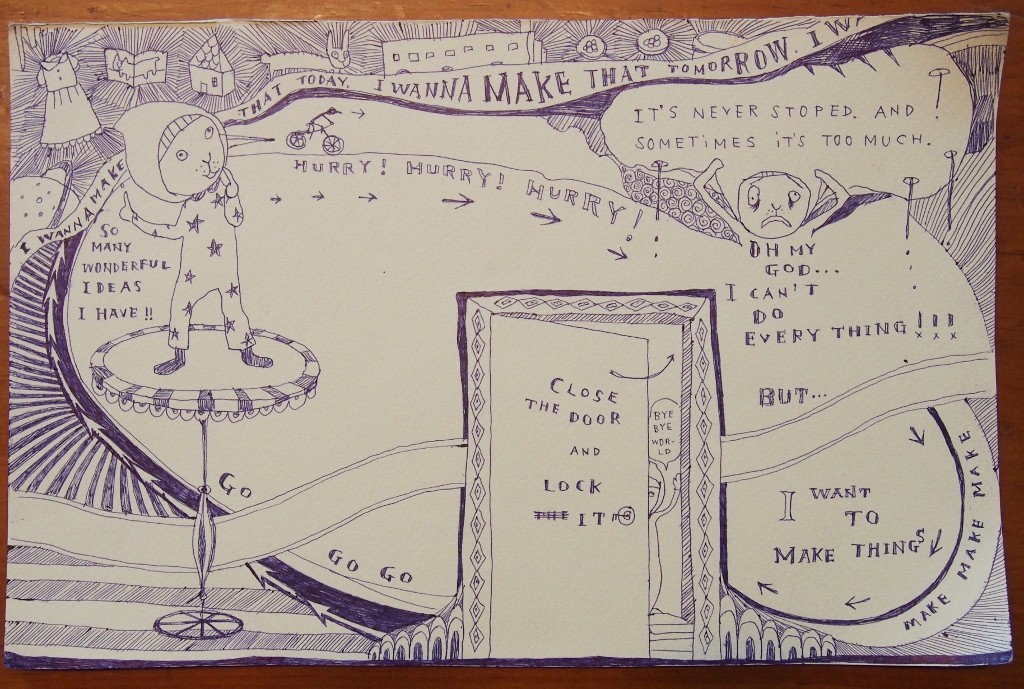 I WANNA MAKE THAT TODAY. I WANNA MAKE THAT TOMORROW. I WA
IT'S NEVER STOPED. AND
SOMETIMES IT'S TOO MUCH.
HURRY! HURRY! HURRY!
SO
MANY
WONDERFUL
IDEAS
I HAVE!!
OH MY
GOD...
I CAN'T
DO
EVERY THING!!!
BUT...
CLOSE
THE DOOR
AND
LOCK
THE IT
BYE
BYE
WOR-
LD
GO
GO GO
I WANT
TO
MAKE THINGS
MAKE MAKE MAKE